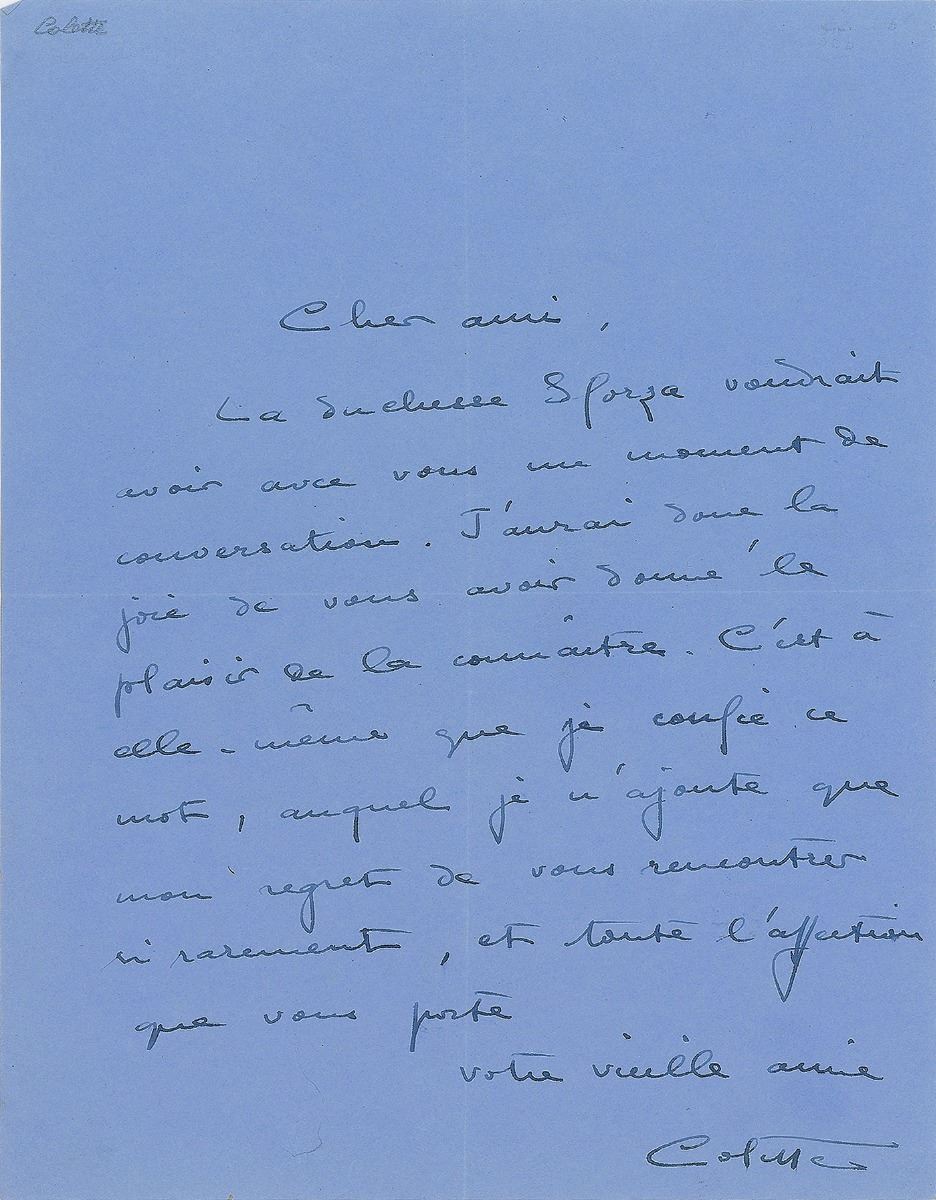 Colette
Cher ami,
La duchesse Sforza voudrait
avoir avec vous un moment de
conversation. J'aurai donc la
joie de vous avoir donné le
plaisir de la connaître. C'est à
elle-même que je confie ce
mot, auquel je n'ajoute que
mon regret de vous rencontrer
si rarement, et toute l'affection
que vous porte
votre vieille amie
Colette